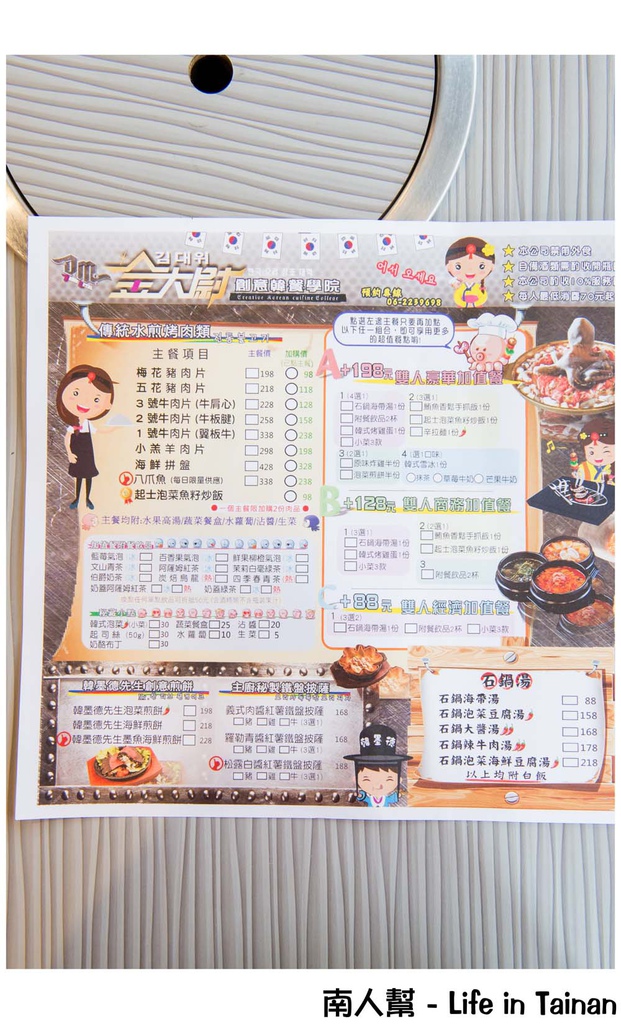 김대위
金大尉 創意韓餐學院
Creative Korean cuisine College
어서 오세요
預約專線
06-2239698
★本公司禁帶外食
★每人最低消費70元起
點選左邊主餐只要再加點
以下任一組合，即可享用更多
的超值餐點喲!
傳統水煎烤肉類
主餐項目 主餐價 加購價
梅花豬肉片 198 98
五花豬肉片 218 118
3號牛肉片(牛肩心) 228 128
2號牛肉片(牛板腱) 258 158
1號牛肉片(翼板牛) 338 238
小羔羊肉片 298 198
海鮮拼盤 428 328
八爪魚(每日限量供應) 338 238
起士泡菜魚籽炒飯 98
●一個主餐限加購2份肉品●
主餐均附:水果高湯/蔬菜餐盒/水蘿蔔/沾醬/生菜
藍莓氣泡 冰 百香果氣泡 冰 鮮果柳橙氣泡 冰
文山青茶 冰 阿薩姆紅茶 冰 茉莉白毫綠茶 冰
伯爵奶茶 冰 炭焙烏龍 熱 四季春青茶 熱
奶蓋阿薩姆紅茶 冰 熱 奶蓋綠茶 冰 熱
韓式泡菜/小菜 30 蔬菜餐盒 25 沾醬 20
起司絲(50g) 30 水蘿蔔 10 生菜 5
奶酪布丁 30
A+198元 雙人豪華加值餐
1 (4選1) 2 (3選1)
石鍋海帶湯1份 鮪魚香鬆手抓飯1份
附餐飲品2杯 起士泡菜魚籽炒飯1份
韓式烤雞蛋1份 辛拉麵1份
小菜3款
3 (2選1) 4 (選1口味)
原味炸雞半份 韓式雪冰1份
泡菜煎餅半份 抹茶 草莓牛奶 芒果牛奶
B+128元 雙人商務加值餐
1 (3選1) 2 (2選1)
石鍋海帶湯1份 鮪魚香鬆手抓飯1份
韓式烤雞蛋1份 起士泡菜魚籽炒飯1份
小菜3款 3
附餐飲品2杯
C+88元 雙人經濟加值餐
1 (3選2)
石鍋海帶湯1份 附餐飲品2杯 小菜3款
韓墨德先生創意煎餅
韓墨德先生泡菜煎餅 198
韓墨德先生海鮮煎餅 218
韓墨德先生墨魚海鮮煎餅 228
主廚秘製鐵盤披薩
義式肉醬紅薯鐵盤披薩 168
豬 雞 牛 (3選1)
羅勒青醬紅薯鐵盤披薩 168
豬 雞 牛 (3選1)
松露白醬紅薯鐵盤披薩 188
豬 雞 牛 (3選1)
韓墨德
石鍋湯
石鍋海帶湯 88
石鍋泡菜豆腐湯 158
石鍋大醬湯 168
石鍋辣牛肉湯 178
石鍋泡菜海鮮豆腐湯 218
以上均附白飯
南人幫 - Life in Tainan